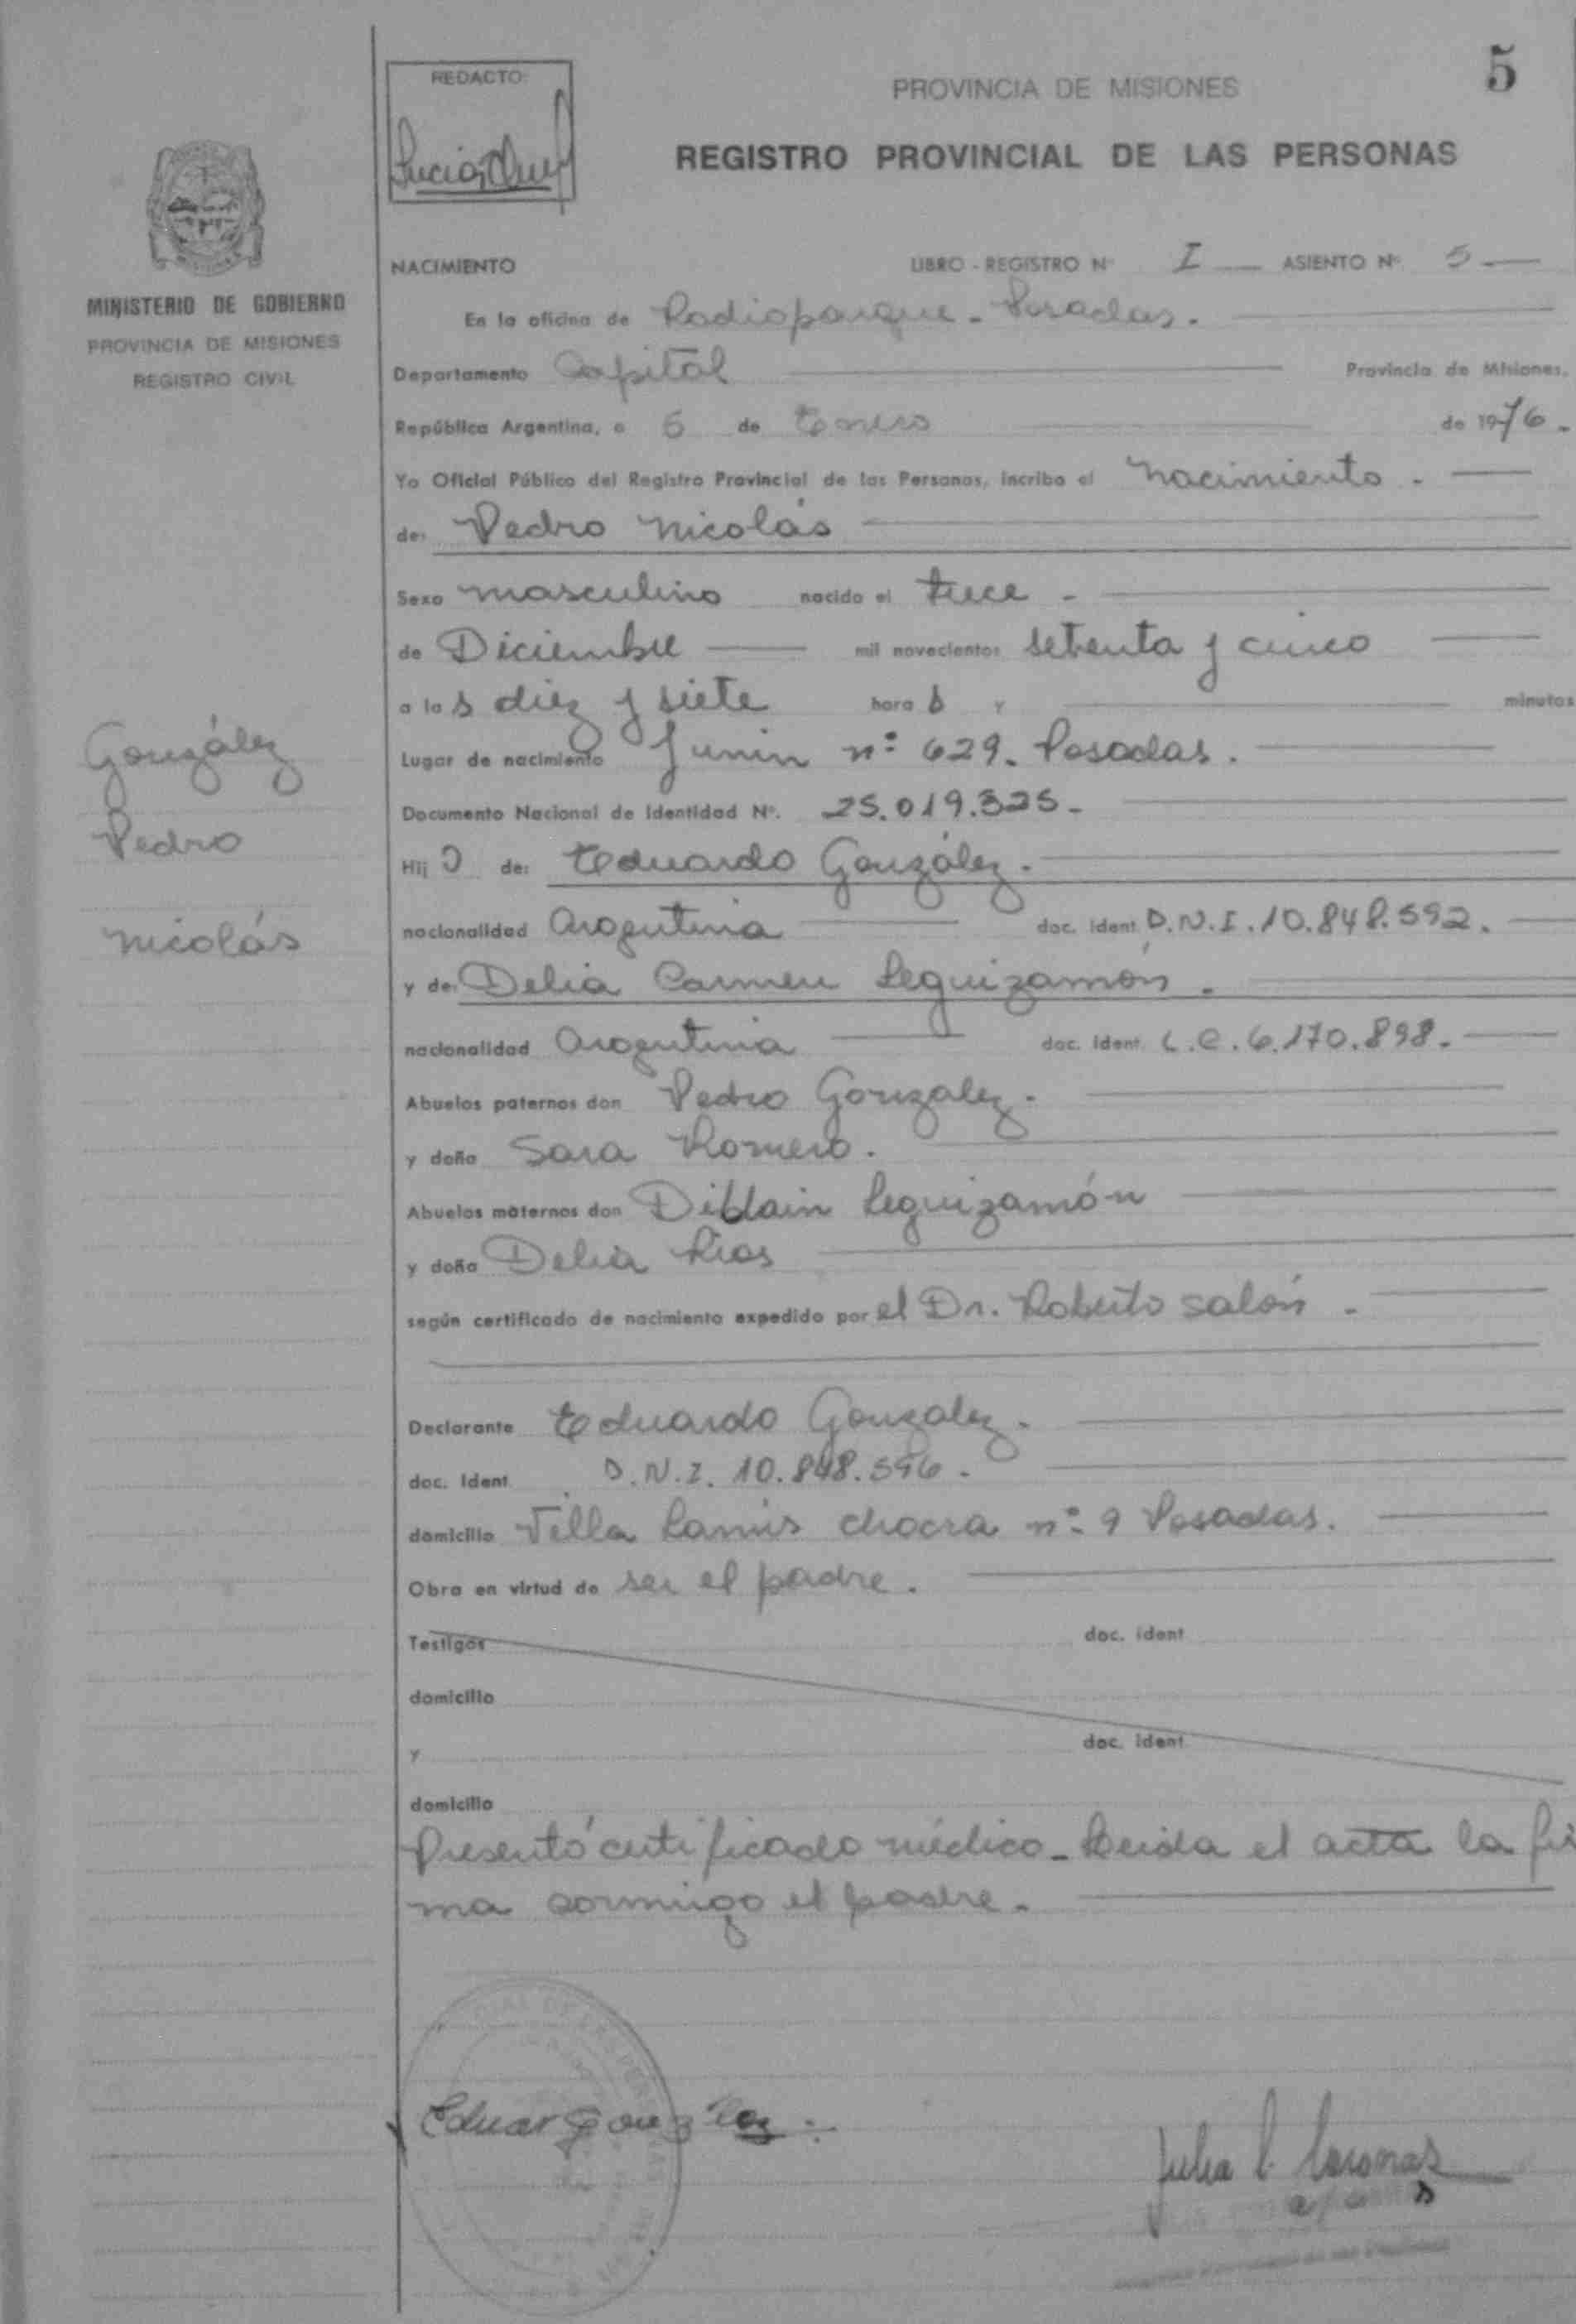 5
REDACTO:
PROVINCIA DE MISIONES
REGISTRO PROVINCIAL DE LAS PERSONAS
MINISTERIO DE GOBIERNO
PROVINCIA DE MISIONES
REGISTRO CIVIL
González
Pedro
Nicolás
NACIMIENTO LIBRO - REGISTRO Nº I ASIENTO Nº 5
En la oficina de Radioparque - Posadas.
Departamento Capital Provincia de Misiones,
República Argentina, a 5 de Enero de 1976.
Yo Oficial Público del Registro Provincial de las Personas, incribo el nacimiento.
de: Pedro Nicolás
Sexo masculino nacido el trece -
de Diciembre mil novecientos setenta y cinco
a las diez y siete horas y minutos
Lugar de nacimiento Junin nº 629. Posadas.
Documento Nacional de Identidad Nº. 25.019.325.
Hijo de: Eduardo González.
nacionalidad Argentina doc. ident. D.N.I. 10.848.592.
y de: Delia Carmen Leguizamón.
nacionalidad Argentina doc. ident. L.C. 6.170.898.
Abuelos paternos don Pedro Gonzalez.
y doña Sara Romero.
Abuelos maternos don Leguizamón
y doña Delia Rios
según certificado de nacimiento expedido por el Dr. Roberto Salón.
Declarante Eduardo Gonzalez.
doc. Ident. D.N.I. 10.848.596.
domicilio Villa Lanús chacra nº 9 Posadas.
Obra en virtud de ser el padre.
Testigos doc. ident
domicilio
y doc. ident
domicilio
Presentó certificado médico - Leida el acta la fir
ma conmigo el padre.
Eduar González.
Julia